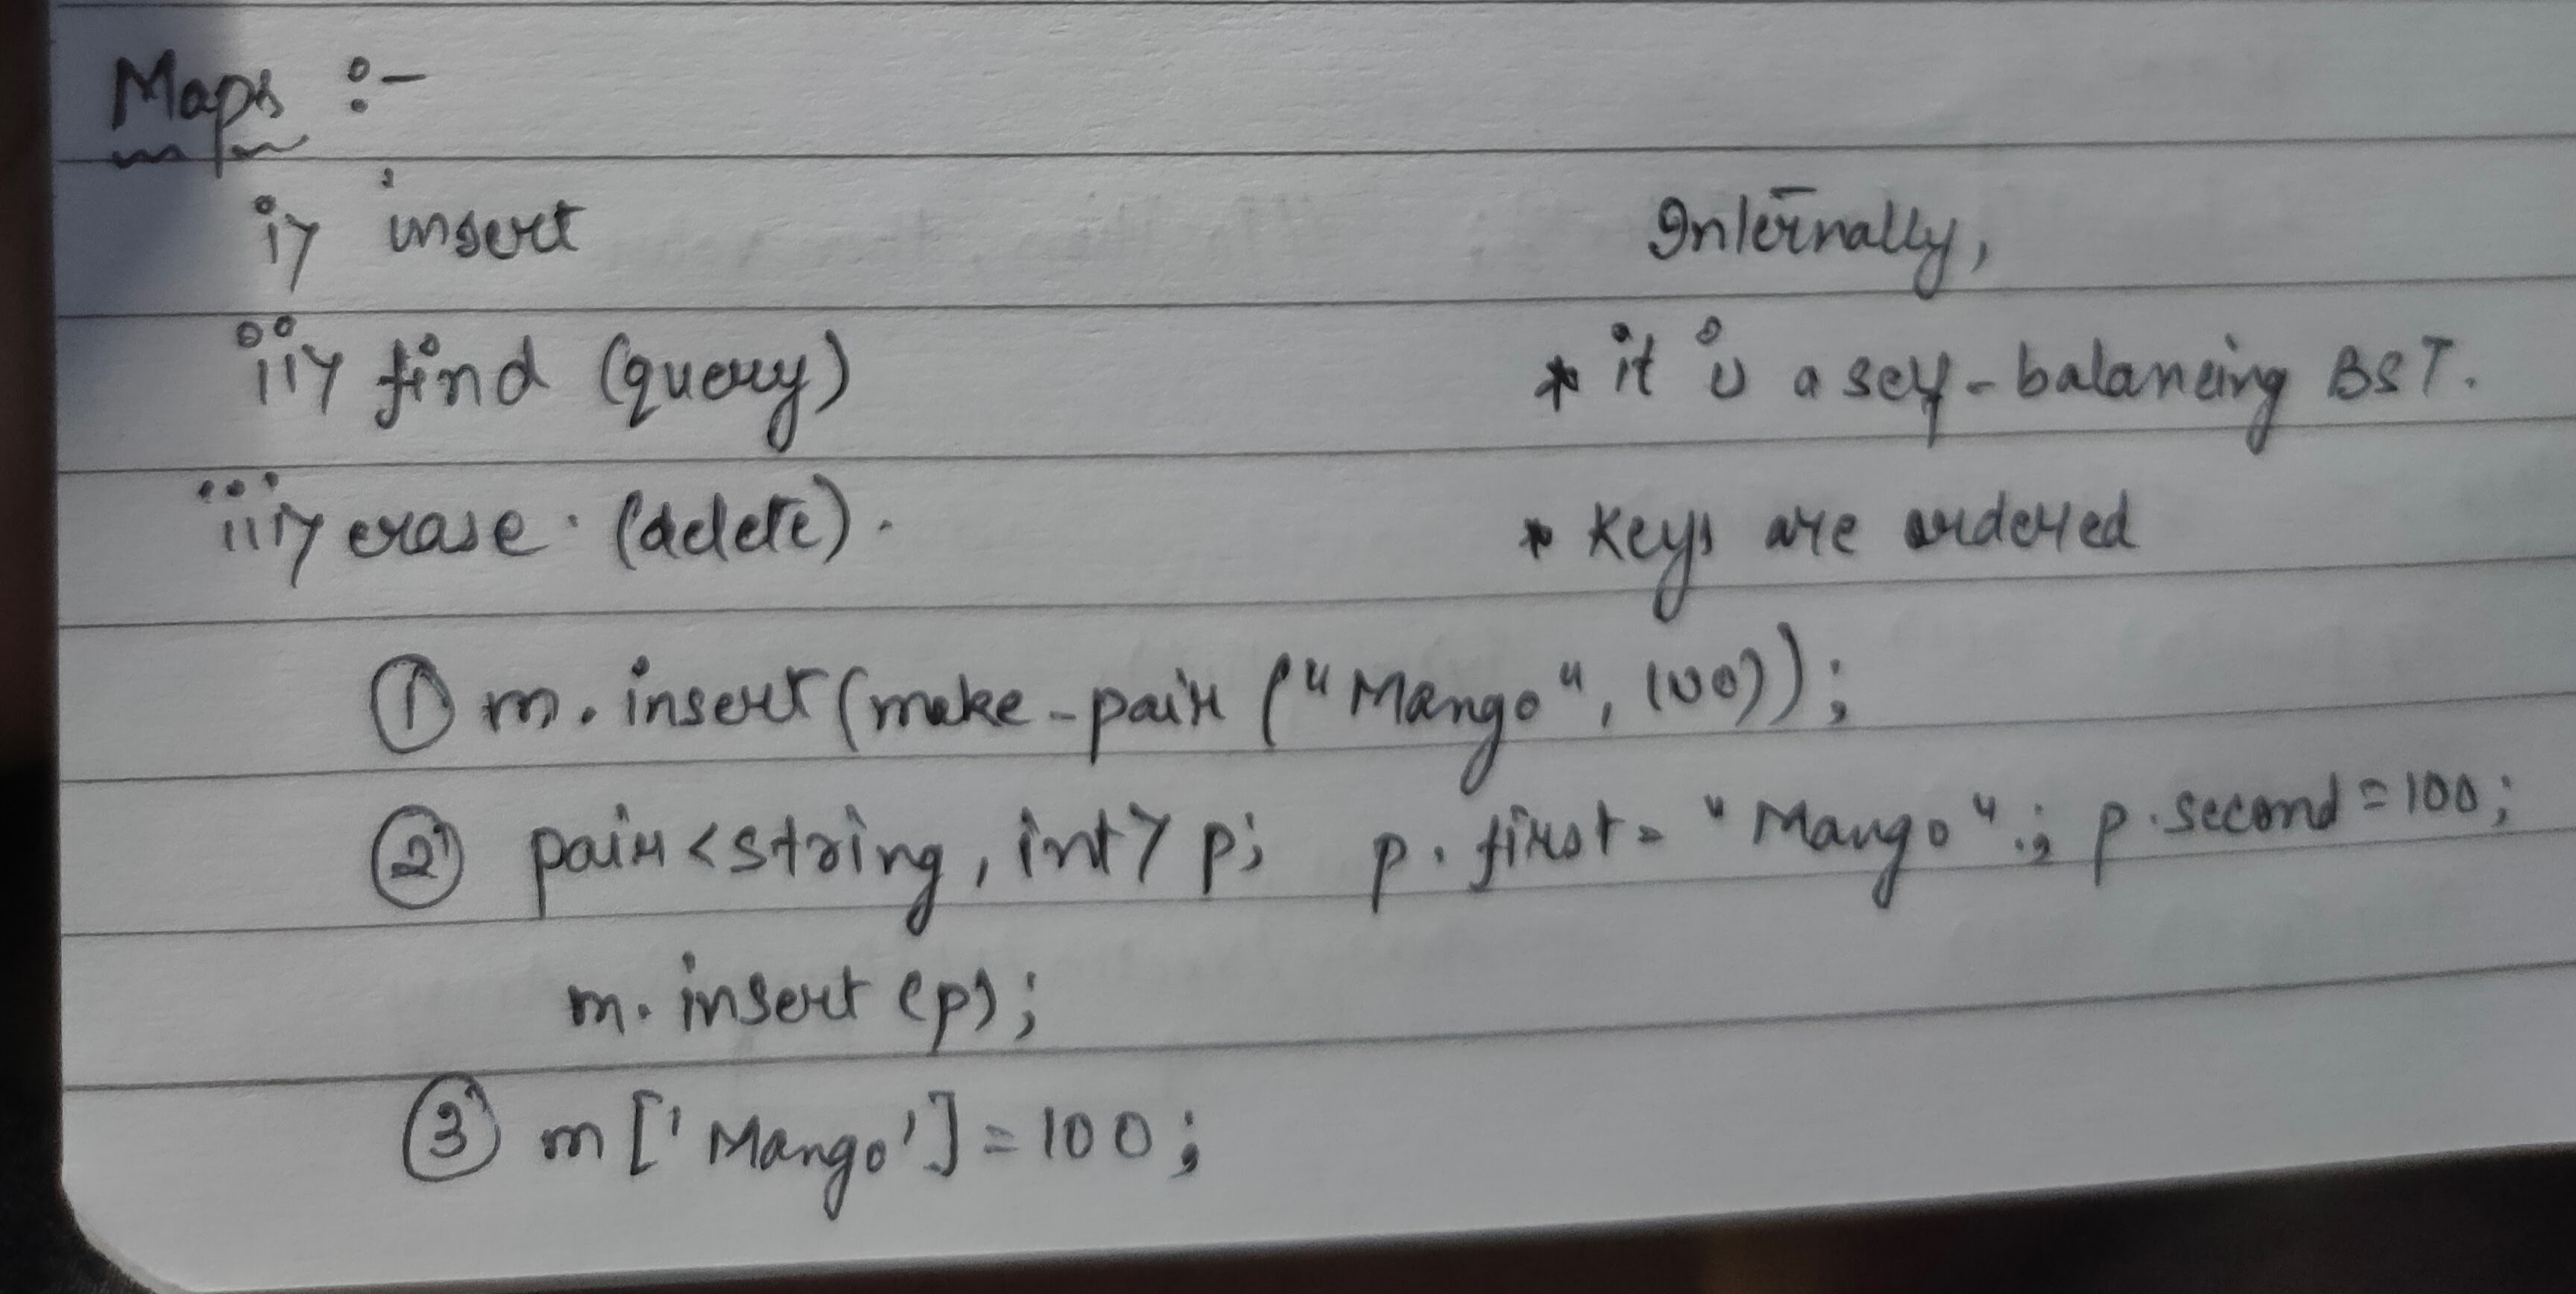 Maps :-
i> insert
ii> find (query)
iii> erase. (delete).
Internally,
* it is a self-balancing BST.
* Keys are ordered
① m.insert(make-pair ("Mango", 100));
② pair<string, int> p; p.first = "Mango"; p.second = 100;
m.insert (p);
③ m['Mango'] = 100;